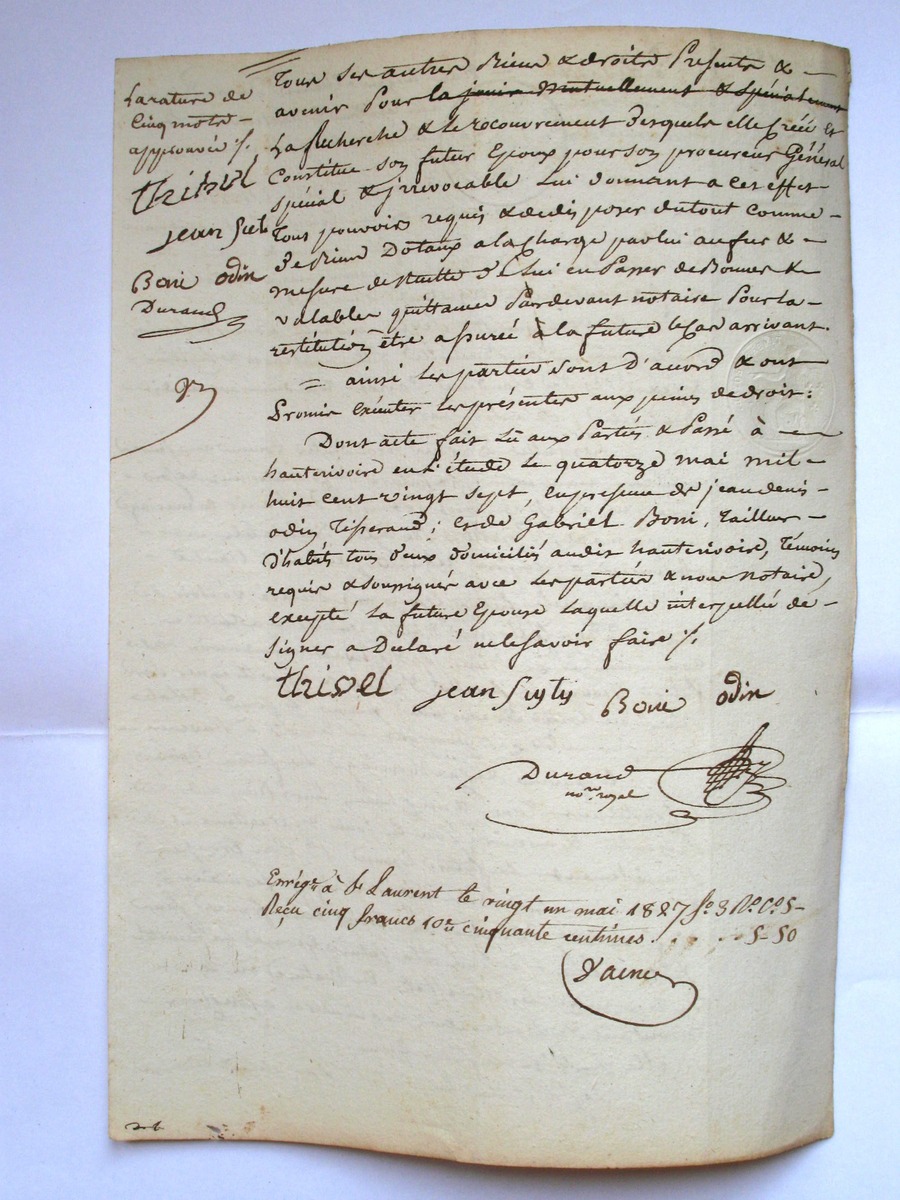 La rature de
Cinq mots
approuvée %.
thisel
jean
Boni odin
Durand
Tous ses autres Biens & droits Présents &
avenir Pour la jouir mutuellement & spécialement
La Recherche & Le recouvrement Desquels elle Créé Et
Constitue son futur Epoux pour son procureur Général
spécial & jrrevocable Lui donnant a cet effet
Tous pouvoirs requis & de disposer du tout Comme
De Biens Dotaux a la Charge par lui au fur &
mesure de Lui en Passer de Bonnes &
valables quittances Pardevant notaire Pour la
restitution être assurée à la future le Cas arrivant.
= ainsi Les parties sont D'accord & ont
Promis exécuter Les présentes aux peines de droit:
Dont acte fait Lû aux Parties & Passé à
hauterivoire en L'étude Le quatorze mai mil
huit cent vingt sept, en presence de jean denis
odin Tisserand; et de Gabriel Boni, tailleur
D'habits tous deux domiciliés audit hauterivoire, témoins
requis & soussignés avec Les parties & nous Notaire,
excepté La future Epouse Laquelle interpellée de
signer a Déclaré ne le savoir faire %.
thisel jean Boni odin
Durand
no.re royal
Enrég.é à S.t Laurent le vingt un mai 1827 f.o 3 R.o C.e 5
Reçu cinq francs 10.e cinquante centimes . . . . 5-50